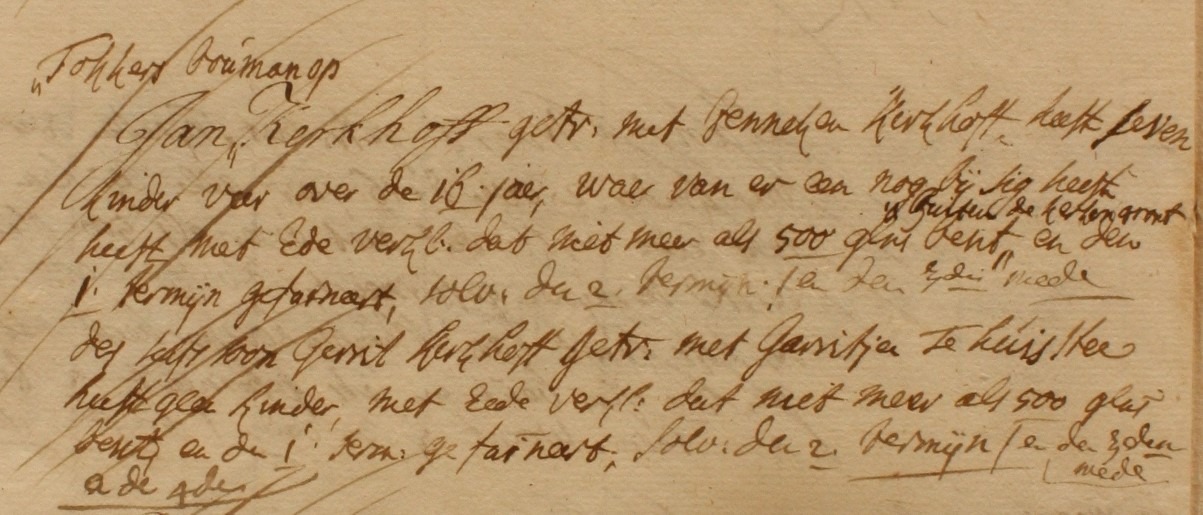 Fokkers bouman op
Jan Kerkhoff getr. met Jenneken Kerkhoff heeft seven
kinder vær over de 16 jaer, waer van er een nog bij sig heeft
buiten de kerkengront
heeft met Ede verkl. dat niet meer als 500 glns besit, en den
1. termijn getaxeert, solv. den 2. termijn. en den 3den mede
des selfs soon Gerrit Kerkhoff getr. met Gerritjen Te Huisstee
heeft geen kinder, met Eede verkl. dat niet meer als 500 glns
besit en den 1. term. getaxeert, solv. den 2. termijn en den 3den
mede
de 4de